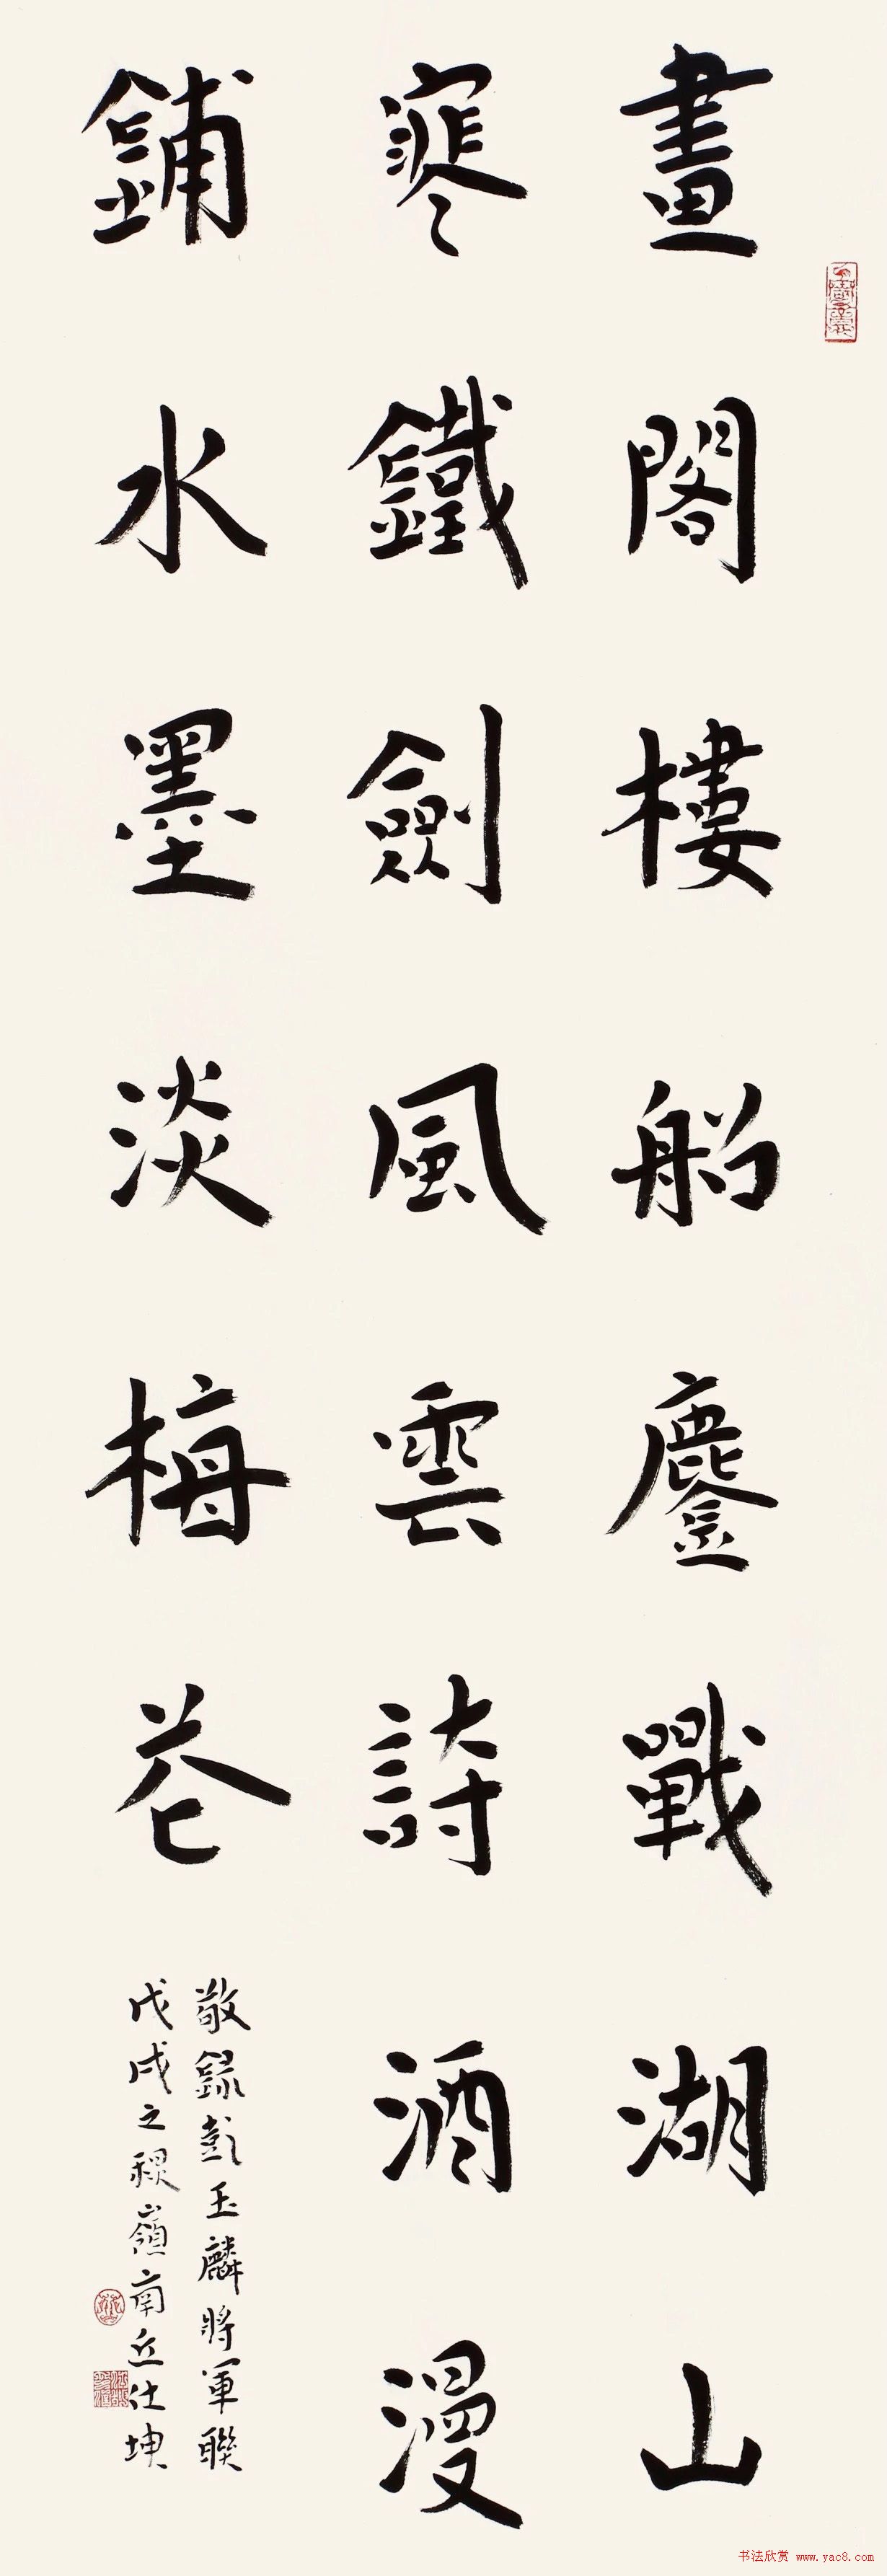 畫閣樓船鏖戰湖山
寒鐵劍風雲詩酒漫
鋪水墨淡梅花
敬錄彭玉麟將軍聯
戊戌之秋嶺南丘仕坤
书法欣赏 www.yac8.com